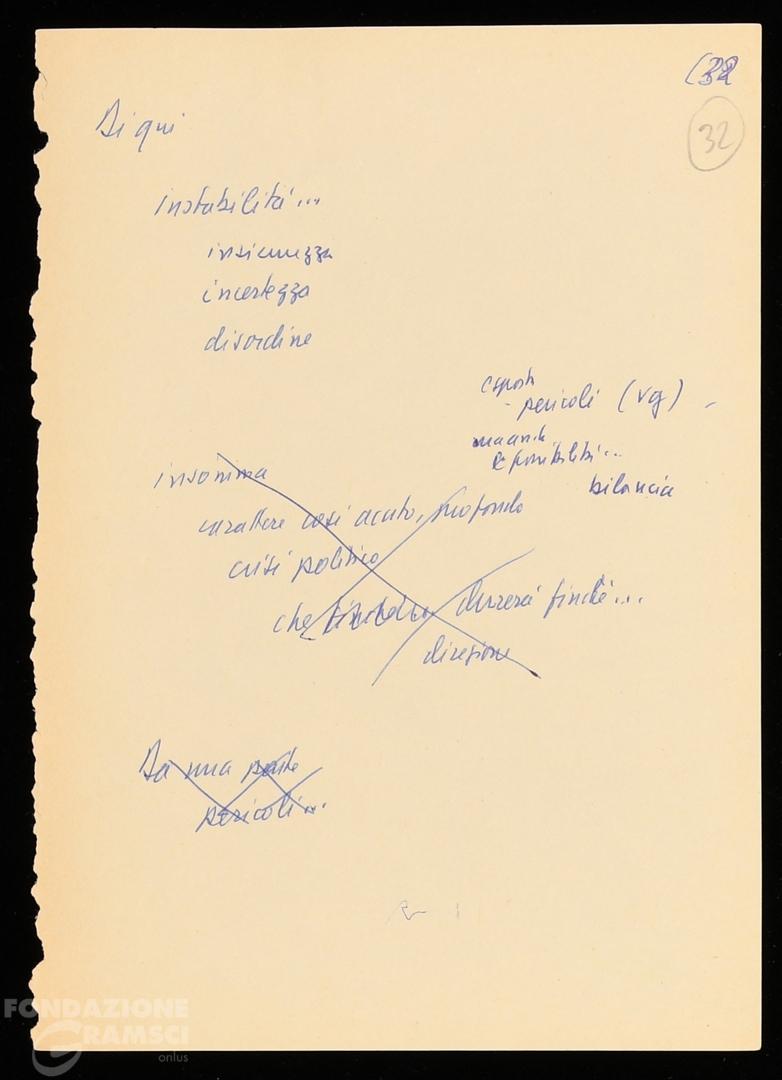 (32
32
Di qui
instabilità...
insicurezza
incertezza
disordine
esposta
- pericoli (vg) -
ma anche
possibilità...
bilancia
insomma
carattere così acuto, profondo
crisi politica
che durerà finché...
direzione
Da una parte
pericoli...
FONDAZIONE
GRAMSCI
onlus